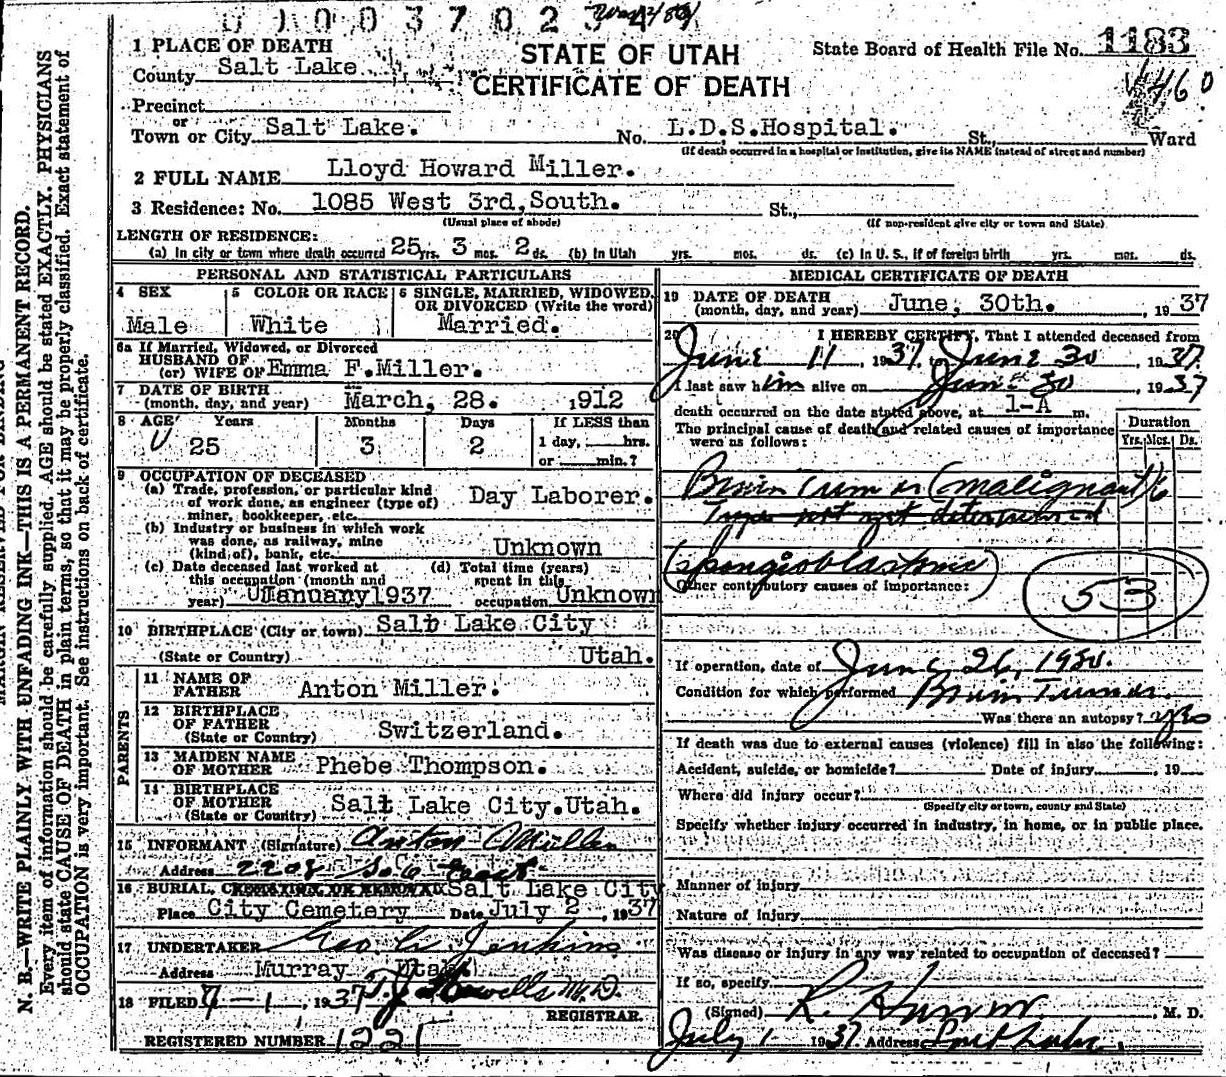 0 0 0 3 7 0 2 3 4
1 PLACE OF DEATH
County Salt Lake.
STATE OF UTAH
CERTIFICATE OF DEATH
State Board of Health File No. 1183
Precinct
or
Town or City Salt Lake. No. L.D.S.Hospital. St., Ward
(If death occurred in a hospital or institution, give its NAME instead of street and number)
2 FULL NAME Lloyd Howard Miller.
3 Residence: No. 1085 West 3rd,South. St.,
(Usual place of abode) (If non-resident give city or town and State)
LENGTH OF RESIDENCE:
(a) In city or town where death occurred 25 yrs. 3 mos. 2 ds. (b) In Utah yrs. mos. ds. (c) In U. S., if of foreign birth yrs. mos. ds.
PERSONAL AND STATISTICAL PARTICULARS
4 SEX
Male
5 COLOR OR RACE
White
6 SINGLE, MARRIED, WIDOWED,
OR DIVORCED (Write the word)
Married.
6a If Married, Widowed, or Divorced
HUSBAND OF
(or) WIFE OF Emma F.Miller.
7 DATE OF BIRTH
(month, day, and year) March, 28. 1912
8 AGE Years Months Days If LESS than
25 3 2 1 day, hrs.
or min.?
9 OCCUPATION OF DECEASED
(a) Trade, profession, or particular kind
of work done, as engineer (type of)
miner, bookkeeper, etc. Day Laborer.
(b) Industry or business in which work
was done, as railway, mine
(kind of), bank, etc. Unknown
(c) Date deceased last worked at
this occupation (month and
year) January1937
(d) Total time (years)
spent in this
occupation Unknown
10 BIRTHPLACE (City or town) Salt Lake City
(State or Country) Utah.
PARENTS
11 NAME OF
FATHER Anton Miller.
12 BIRTHPLACE
OF FATHER
(State or Country) Switzerland.
13 MAIDEN NAME
OF MOTHER Phebe Thompson.
14 BIRTHPLACE
OF MOTHER
(State or Country) Salt Lake City.Utah.
15 INFORMANT (Signature) Anton Miller
Address 2208 So. 6 East.
16 BURIAL, CREMATION, OR REMOVAL Salt Lake City
Place City Cemetery Date July 2 , 1937
17 UNDERTAKER Geo Jenkins
Address Murray Utah
18 FILED 7-1, 1937 T.J. Howells M.D.
REGISTRAR.
REGISTERED NUMBER 1221
MEDICAL CERTIFICATE OF DEATH
19 DATE OF DEATH
(month, day, and year) June, 30th. , 1937
20 I HEREBY CERTIFY, That I attended deceased from
June 11 1937, to June 30 1937.
I last saw him alive on June 30 1937
death occurred on the date stated above, at 1-A m.
The principal cause of death and related causes of importance
were as follows:
Duration
Yrs. Mos. Ds.
Brain Tumor (malignant) 6
Type not yet determined
(spongioblastoma)
Other contributory causes of importance:
53
If operation, date of June 26, 1937.
Condition for which performed Brain Tumor.
Was there an autopsy? yes
If death was due to external causes (violence) fill in also the following:
Accident, suicide, or homicide? Date of injury , 19
Where did injury occur?
(Specify city or town, county and State)
Specify whether injury occurred in industry, in home, or in public place.
Manner of injury
Nature of injury
Was disease or injury in any way related to occupation of deceased?
If so, specify
(Signed) , M. D.
July 1 1937 Address Salt Lake.
N. B.—WRITE PLAINLY, WITH UNFADING INK—THIS IS A PERMANENT RECORD.
Every item of information should be carefully supplied. AGE should be stated EXACTLY. PHYSICIANS
should state CAUSE OF DEATH in plain terms, so that it may be properly classified. Exact statement of
OCCUPATION is very important. See instructions on back of certificate.